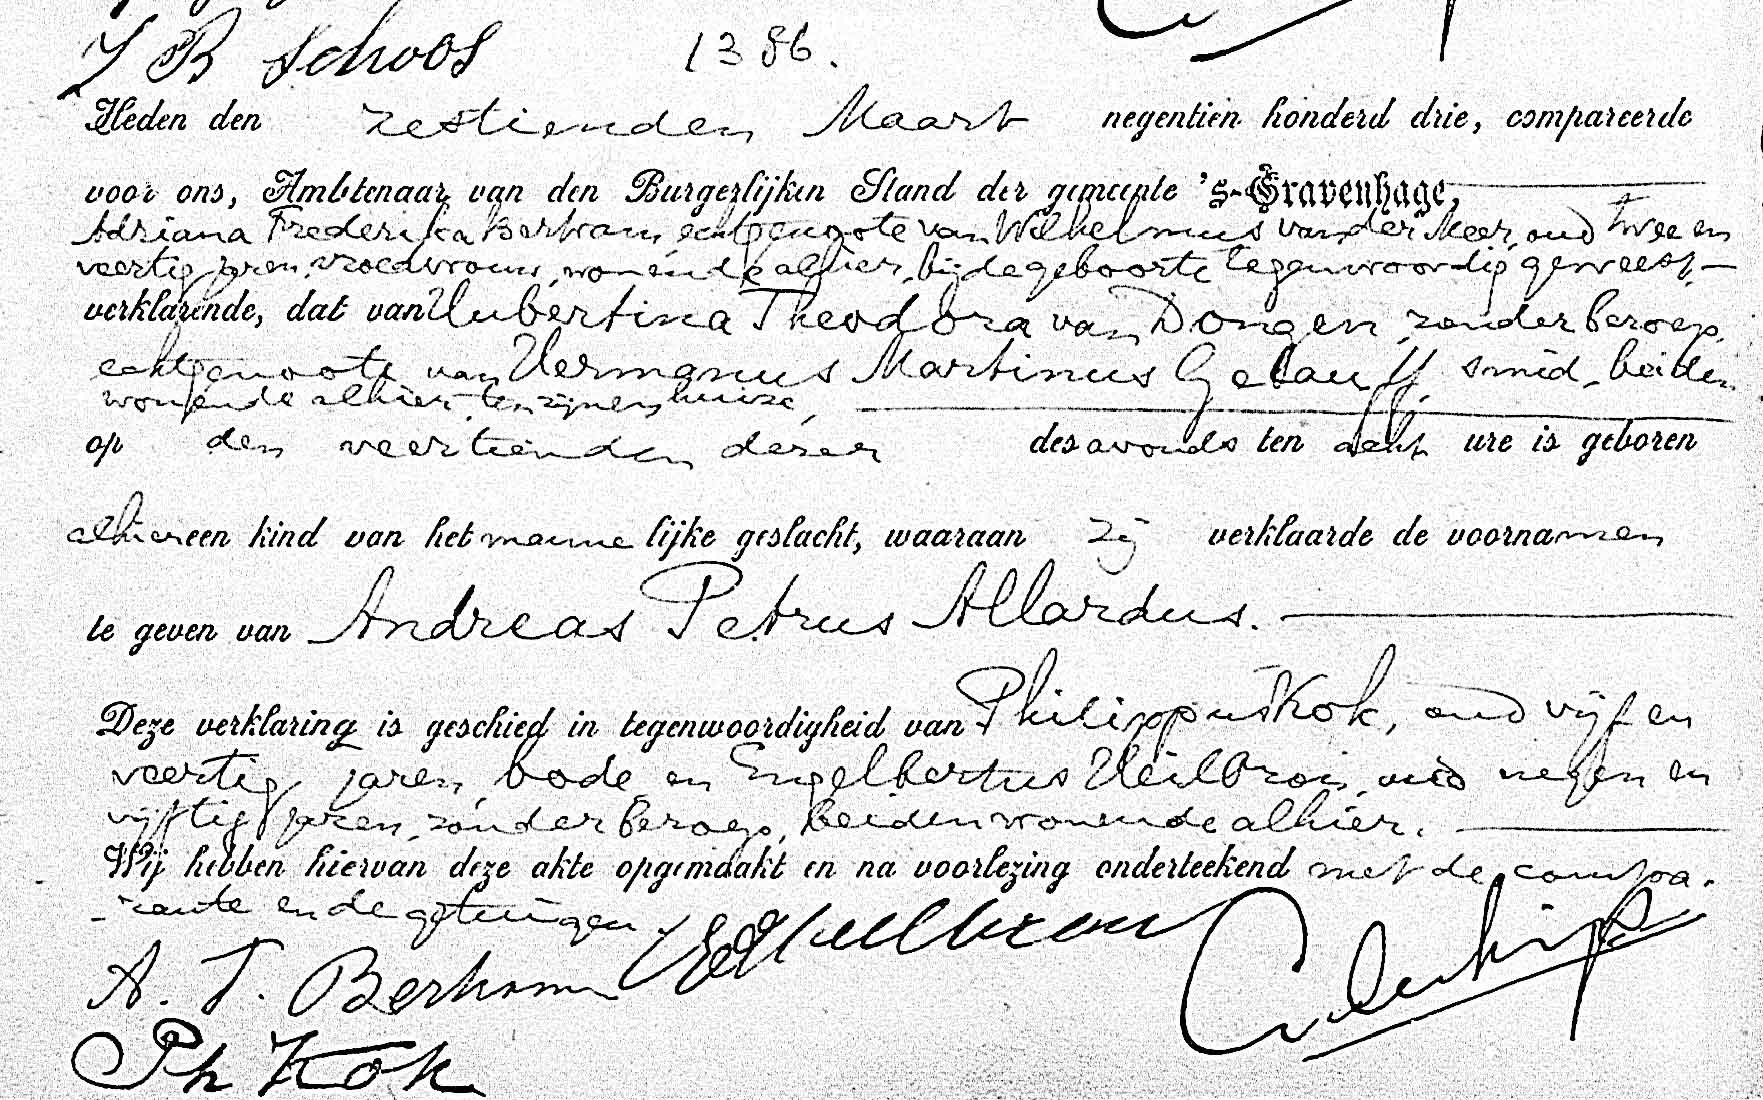 J B Schoos 1386.
Heden den zestienden Maart negentien honderd drie, compareerde
voor ons, Ambtenaar van den Burgerlijken Stand der gemeente 's-Gravenhage,
Adriana Frederika Berkram, echtgenoote van Wilhelmus van der Meer, oud twee en
veertig jaren, vroedvrouw, wonende alhier, bij de geboorte tegenwoordig geweest,
verklarende, dat van Hubertina Theodora van Dongen, zonder beroep,
echtgenoote van Hermanus Martinus Gelauff, smid, beiden
wonende alhier, ten zijnen huize,
op den veertienden dezer des avonds ten acht ure is geboren
alhier een kind van het mannelijke geslacht, waaraan zij verklaarde de voornamen
te geven van Andreas Petrus Allardus.
Deze verklaring is geschied in tegenwoordigheid van Philippus Kok, oud vijf en
veertig jaren, bode en Engelbertus Heilbron, oud negen en
vijftig jaren, zonder beroep, beiden wonende alhier.
Wij hebben hiervan deze akte opgemaakt en na voorlezing onderteekend met de compa-
-rante en de getuigen.
A. F. Berkram E Heilbron
Ph Kok